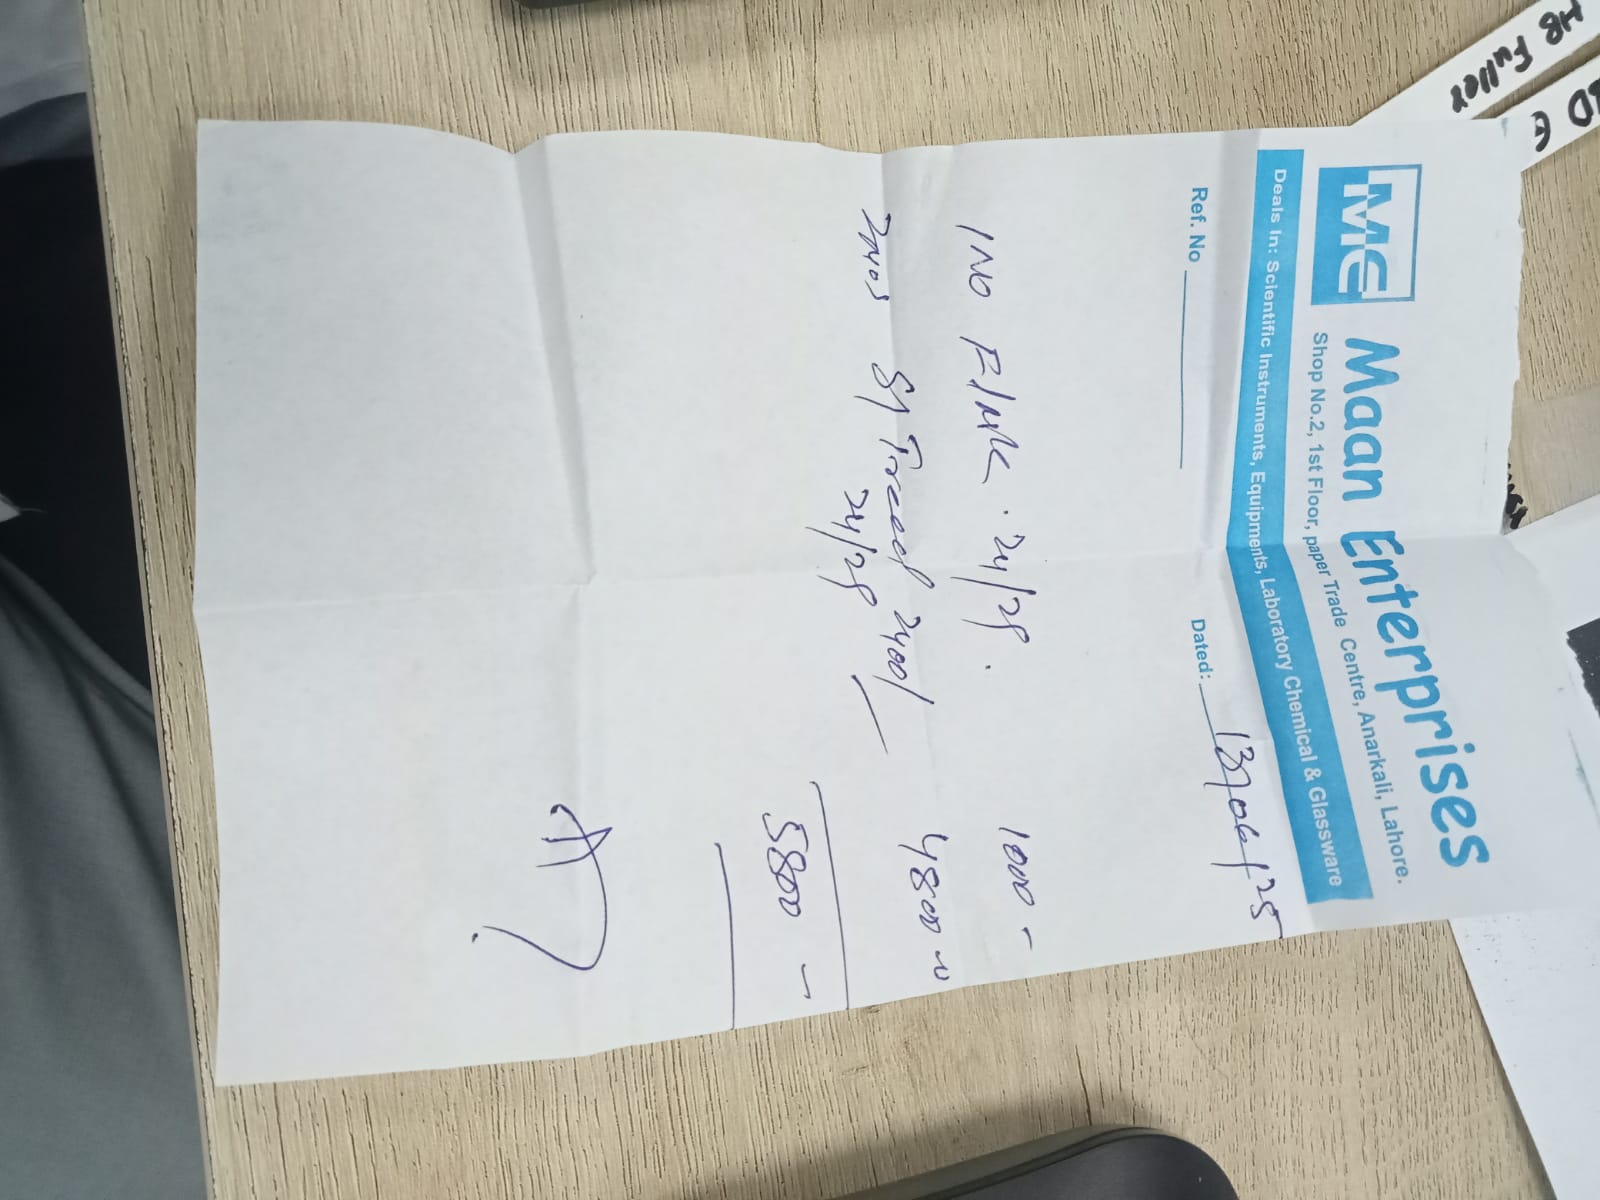 ME
Maan Enterprises
Shop No.2, 1st Floor, paper Trade Centre, Anarkali, Lahore.
Deals In: Scientific Instruments, Equipments, Laboratory Chemical & Glassware
Ref. No Dated: 13/06/25
1No 24/29. 1000 -
2Nos 2400/ 4800 -
24/29
5800 -
HB Fuller